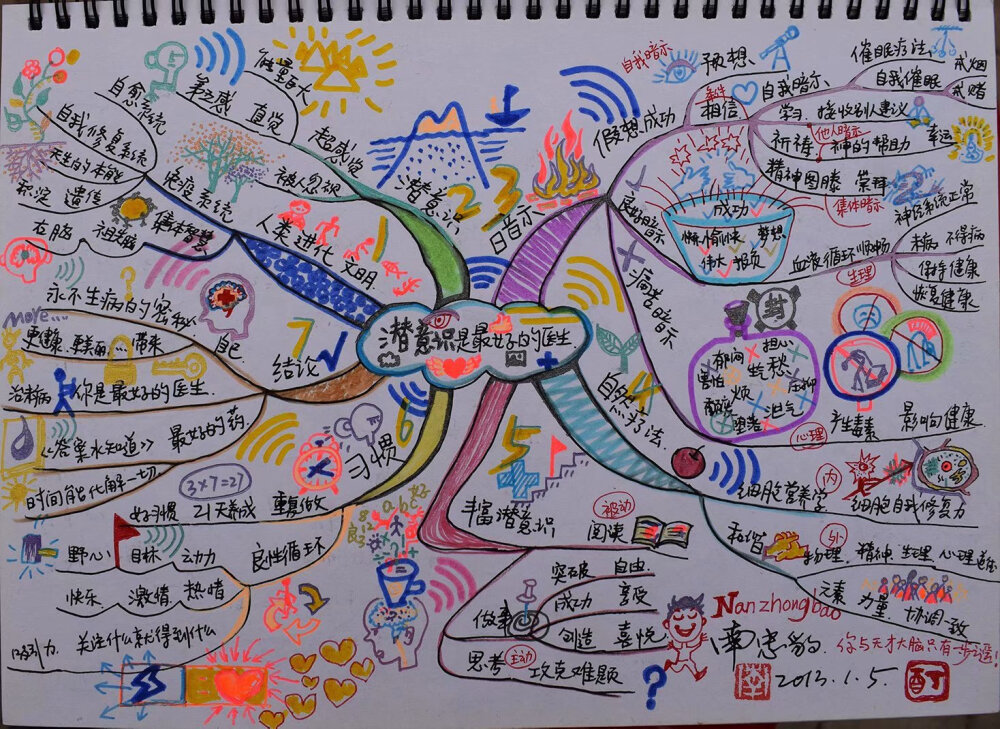 潜意识是最好的医生
1
人类进化 文明
自愈系统
自我修复系统
天生的本能
免疫系统
沉淀 遗传
集体智慧
右脑
祖先脑
2
潜意识
能量大
第六感 直觉
超感觉
被人忽视
3
暗示
假想成功
自我暗示
预想
相信
自我暗示
催眠疗法
自我催眠
戒烟
戒赌
学习 接收别人建议
他人暗示
祈祷
神的帮助
幸运
精神图腾 崇拜
集体暗示
成功
愉快
梦想
伟大
神经系统正常
血液循环顺畅
生理
未病 不得病
保持健康
恢复健康
病者暗示
封
郁闷
担心
害怕
忧愁
压抑
烦
泄气
堕落
心理
产生毒素
影响健康
4
自然疗法
细胞营养学
内
细胞自我修复力
和谐
外
物理 精神 生理 心理
元素
力量 协调一致
5
丰富潜意识
被动
阅读
做事
突破 自由
成功 享受
创造 喜悦
思考
主动
攻克难题
?
6
习惯
重复做
3×7=21
21天养成
好习惯
良性循环
野心
目标 动力
快乐 激情 热情
吸引力
关注什么就得到什么
7
结论
永不生病的密秘
自己
more...
更健康 更美丽...带来
治未病
你是最好的医生
最好的药
《答案水知道》
时间能化解一切
Nanzhongbao
南忠豹
你与天才大脑只有一步之遥!
2013.1.5.